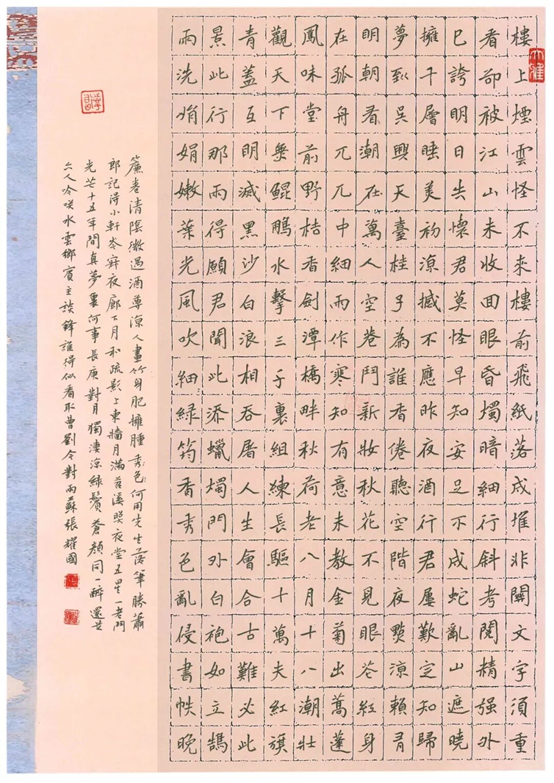 樓上煙雲怪不來樓前飛紙落成堆非關文字須重
看卻被江山未收回眼昏燭暗細行斜考閱精強外
已誇明日去懷君莫怪早知安足不成蛇亂山遮曉
擁千層睡美初涼撼不應昨夜酒行君屢歎定知歸
夢到吳興天臺桂子為誰香倦聽空階夜點涼賴有
明朝看潮在萬人空巷鬥新妝秋花不見眼花紅身
在孤舟兀兀中細雨作寒知有意未教金菊出蒿蓬
鳳味堂前野桔香劍潭橋畔秋荷老八月十八潮壯
觀天下無鯤鵬水擊三千里組練長驅十萬夫紅旗
青蓋互明滅黑沙白浪相吞屠人生會合古難必此
景此行那兩得願君聞此添蠟燭門外白袍如立鵠
雨洗娟娟嫩葉光風吹細綠筠香秀色亂侵書帙晚
簾卷清陰微過酒尊涼人畫竹身肥擁腫秀色何用先生落筆勝蕭
郎記得小軒岑寂夜廊下月和疏影上東牆月滿苕溪照夜堂五星一老鬥
光芒十五年間真夢裏何事長庚對月獨淒涼綠鬢蒼顏同一醉還是
六人吟笑水雲鄉賓主談鋒誰得似看取曹劉今對兩蘇張耀國
大雅